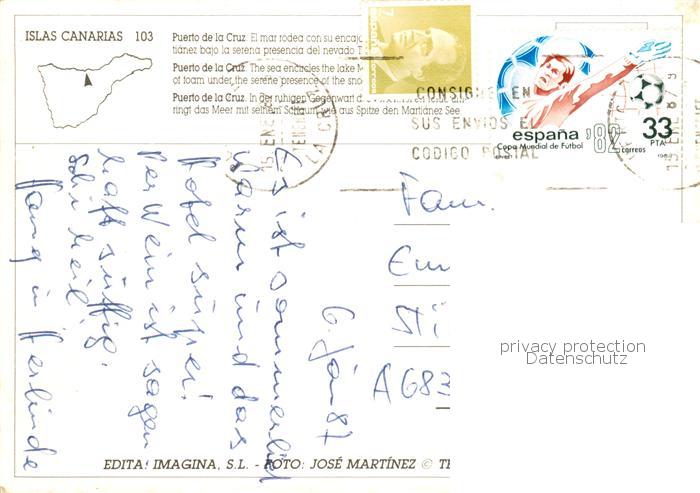 ISLAS CANARIAS 103
Puerto de la Cruz. El mar rodea con su encaj
tiánez bajo la serena presencia del nevado T
Puerto de la Cruz. The sea encircles the lake M
of foam under the serene presence of the sno
Puerto de la Cruz. In der ruhigen Gegenwart d
ringt das Meer mit seinem Schaum wie aus Spitze den Martiánez See
7
españa
correos
CONSIGNE EN
SUS ENVIOS E
CODIGO POSTAL
15 ENE
LA C
españa '82
Copa Mundial de Futbol
correos
33
PTA
6. Jän 87
Es ist sommerlich
warm und das
Hotel super!
Der Wein ist sagen
haft süffig.
Schi heil!
Hans u Herlinde
Fam.
Em
Sti
A683
privacy protection
Datenschutz
EDITA: IMAGINA, S.L. - FOTO: JOSÉ MARTÍNEZ © TE